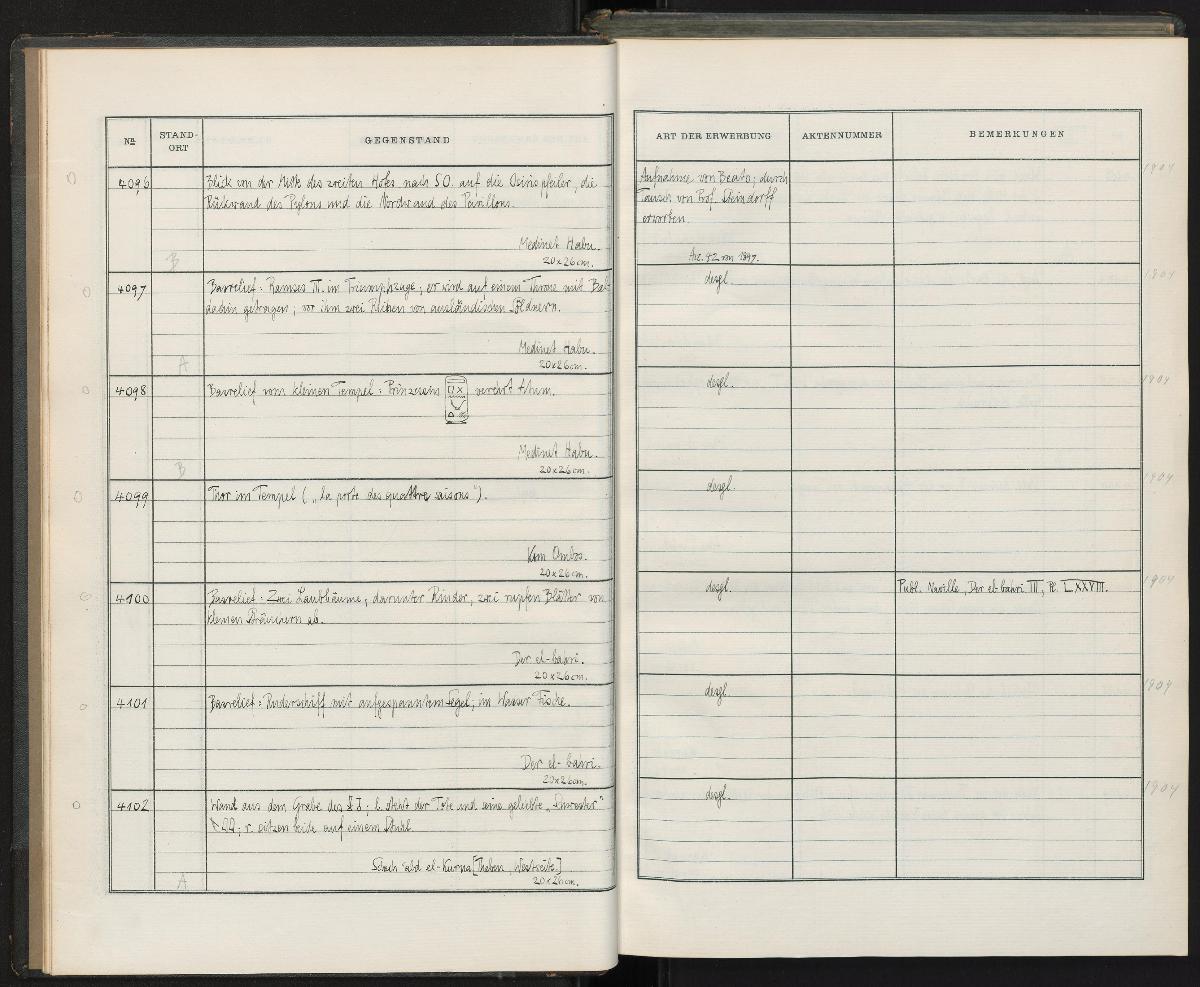 Nº
STAND-
ORT
GEGENSTAND
4096
Blick von der Mitte des zweiten Hofes nach SO. auf die Osirispfeiler, die
Rückwand des Pylons und die Nordwand des Pavillons.
Medinet Habu.
B
20x26cm.
4097
Basrelief: Ramses III. im Triumphzuge; er wird auf einem Throne mit
getragen; vor ihm zwei Reihen von ausländischen Söldnern.
Medinet Habu.
A
20x26cm.
4098
Basrelief vom kleinen Tempel: Prinzessin verehrt Atum.
Medinet Habu.
B
20x26cm.
4099
Thor im Tempel („la porte des quattre saisons").
Kom Ombos.
20x26cm.
4100
Basrelief: Zwei Laubbäume, darunter Rinder, zwei rupfen Blätter von
kleinen Bäumen ab.
Der el-bahri.
20x26cm.
4101
Basrelief: Ruderschiff mit aufgespanntem Segel; im Wasser Fische.
Der el-bahri.
20x26cm.
4102
Wand aus dem Grabe des ; l. steht der Tote und seine geliebte „Schwester"
; r. sitzen beide auf einem Stuhl.
Schech abd el-Kurna [Theben, Westseite.]
A
20x26cm.
ART DER ERWERBUNG
AKTENNUMMER
BEMERKUNGEN
Aufnahme von Beato; durch
Tausch von Prof. Steindorff
erworben.
Acc. 42 von 1897.
1904
desgl.
1904
desgl.
1904
desgl.
1904
desgl.
Publ. Naville, Der el bahri III, Pl. LXXVIII.
1904
desgl.
1904
desgl.
1904